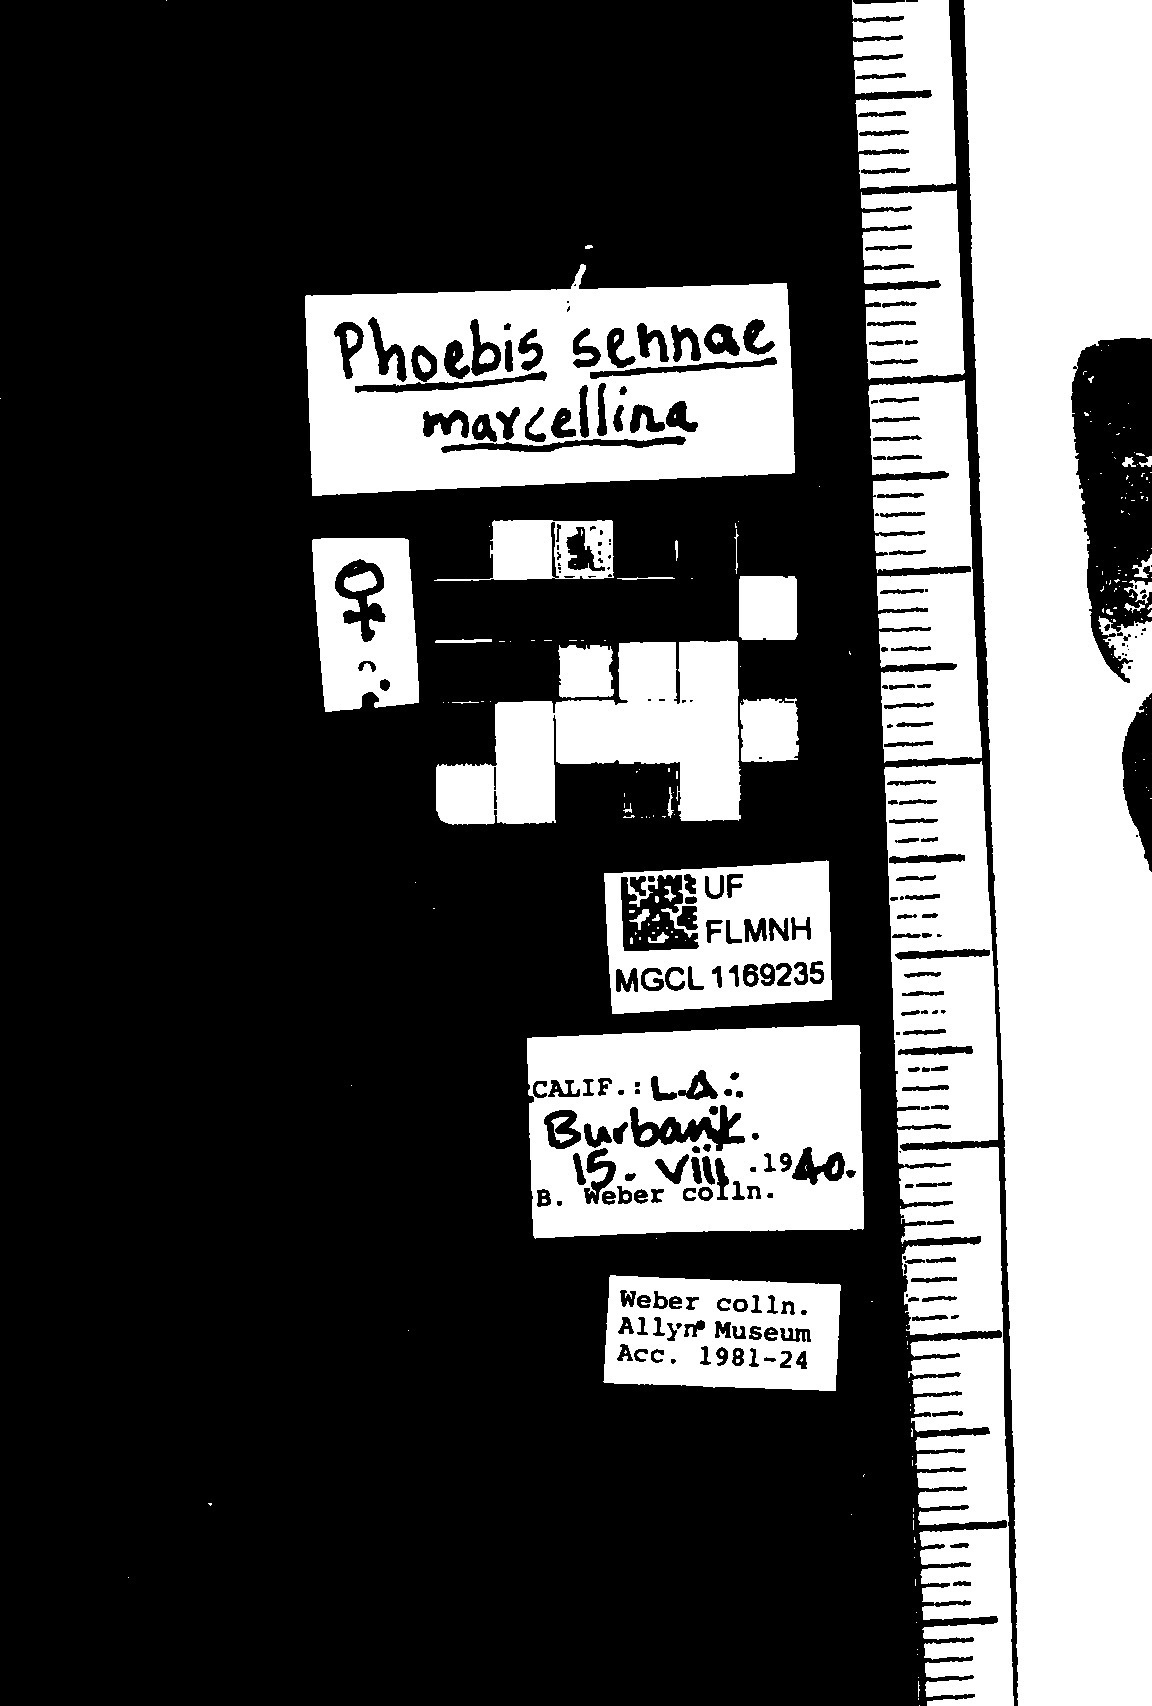 Phoebis sennae
marcellina
♀
UF
FLMNH
MGCL 1169235
CALIF.: L.A.:
Burbank.
15. viii .1940.
B. Weber colln.
Weber colln.
Allyn Museum
Acc. 1981-24